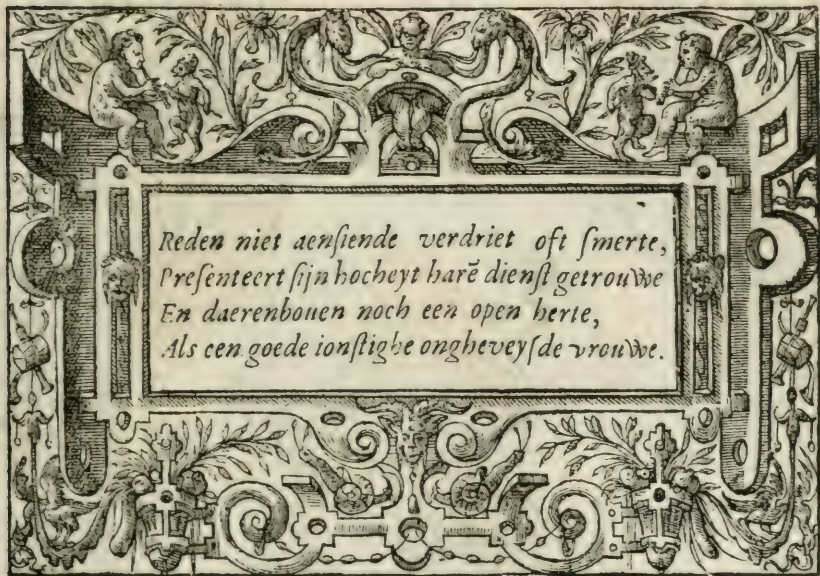 Reden niet aenſiende verdriet oft ſmerte,
Preſenteert ſijn hocheyt harē dienſt getrouwe
En daerenbouen noch een open herte,
Als een goede ionſtighe ongheveyſde vrouwe.